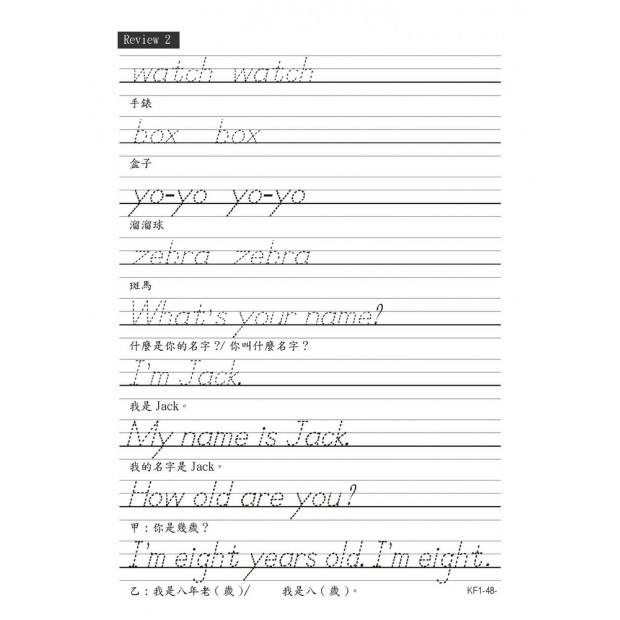 Review 2
watch watch
手錶
box box
盒子
yo-yo yo-yo
溜溜球
zebra zebra
斑馬
What's your name?
什麼是你的名字?/ 你叫什麼名字？
I'm Jack.
我是 Jack。
My name is Jack.
我的名字是 Jack。
How old are you?
甲：你是幾歲？
I'm eight years old. I'm eight.
乙：我是八年老（歲）/ 我是八（歲）。
KF1-48-